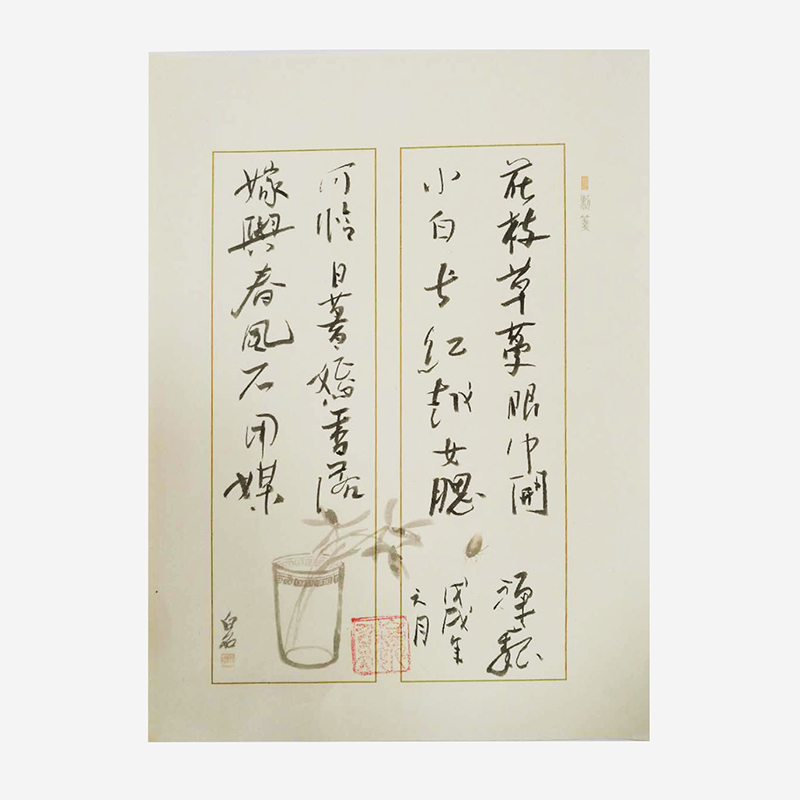 花枝草蔓眼中開
小白长红越女腮
可怜日暮嫣香落
嫁與春風不用媒
戊戌年
六月
白石